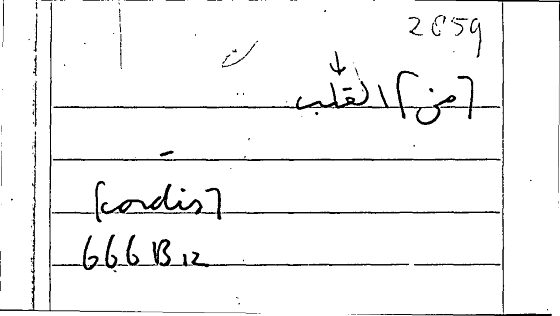 2659
[من] القلب
[cordis]
666 B 12